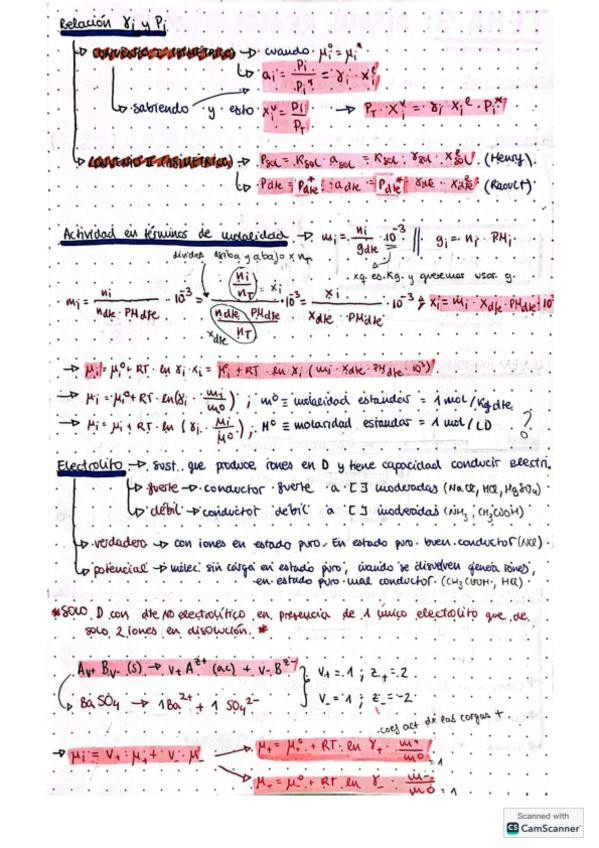 Relación γi y Pi
CONVENIO I (SIMÉTRICO) → cuando μi° = μi*
ai = Pi / Pi* = γi · xi^l
sabiendo y esto xi^v = Pi / PT → PT · xi^v = γi · xi^l · Pi*
CONVENIO II (ASIMÉTRICO) → Psol = Ksol · asol = Ksol · γsol · xsol^l (Henry).
Pdte = Pdte* · adte = Pdte* · γdte · xdte^l (Raoult)
Actividad en términos de molalidad → mi = ni / gdte · 10^-3 || gi = ni · PMi
divides arriba y abajo x nT
xq es Kg y queremos usar g.
mi = ni / (ndte · PMdte) · 10^-3 = (ni/nT = xi) / (ndte · PMdte / nT) · 10^-3 = xi / (xdte · PMdte) · 10^-3 ; xi = mi · xdte · PMdte · 10
xdte
→ μi = μi° + RT · ln γi · xi = μi° + RT · ln γi (mi · xdte · PMdte · 10^3)
→ μi = μi° + RT · ln (γi · mi / m°) ; m° ≡ molalidad estandar = 1 mol/Kgdte
→ μi = μi + RT · ln (γi · Mi / M°) ; M° ≡ molaridad estandar = 1 mol/LD ?
Electrolito → sust. que produce iones en D y tiene capacidad conducir electri.
fuerte → conductor fuerte a [ ] moderadas (NaCl, HCl, MgSO4)
débil → conductor débil a [ ] moderadas (NH3, CH3COOH)
verdadero → con iones en estado puro. En estado puro buen conductor
potencial → molec sin carga en estado puro, cuando se disuelven genera iones,
en estado puro mal conductor. (CH3COOH, HCl)
*SOLO D con dte NO electrolítico en presencia de 1 único electrolito que de
solo 2 iones en disolución. *
Aν+ Bν- (s) → ν+ A^z+ (ac) + ν- B^z- ν+ = 1 ; z+ = 2
BaSO4 → 1Ba^2+ + 1 SO4^2- ν- = 1 ; z- = -2
coef act de las cargas +
→ μi = ν+ · μ+ + ν- · μ- μ+ = μ+° + RT · ln γ+ · m+ / m° = 1
μ- = μ-° + RT ln γ- · m- / m° = 1
Scanned with
CS CamScanner